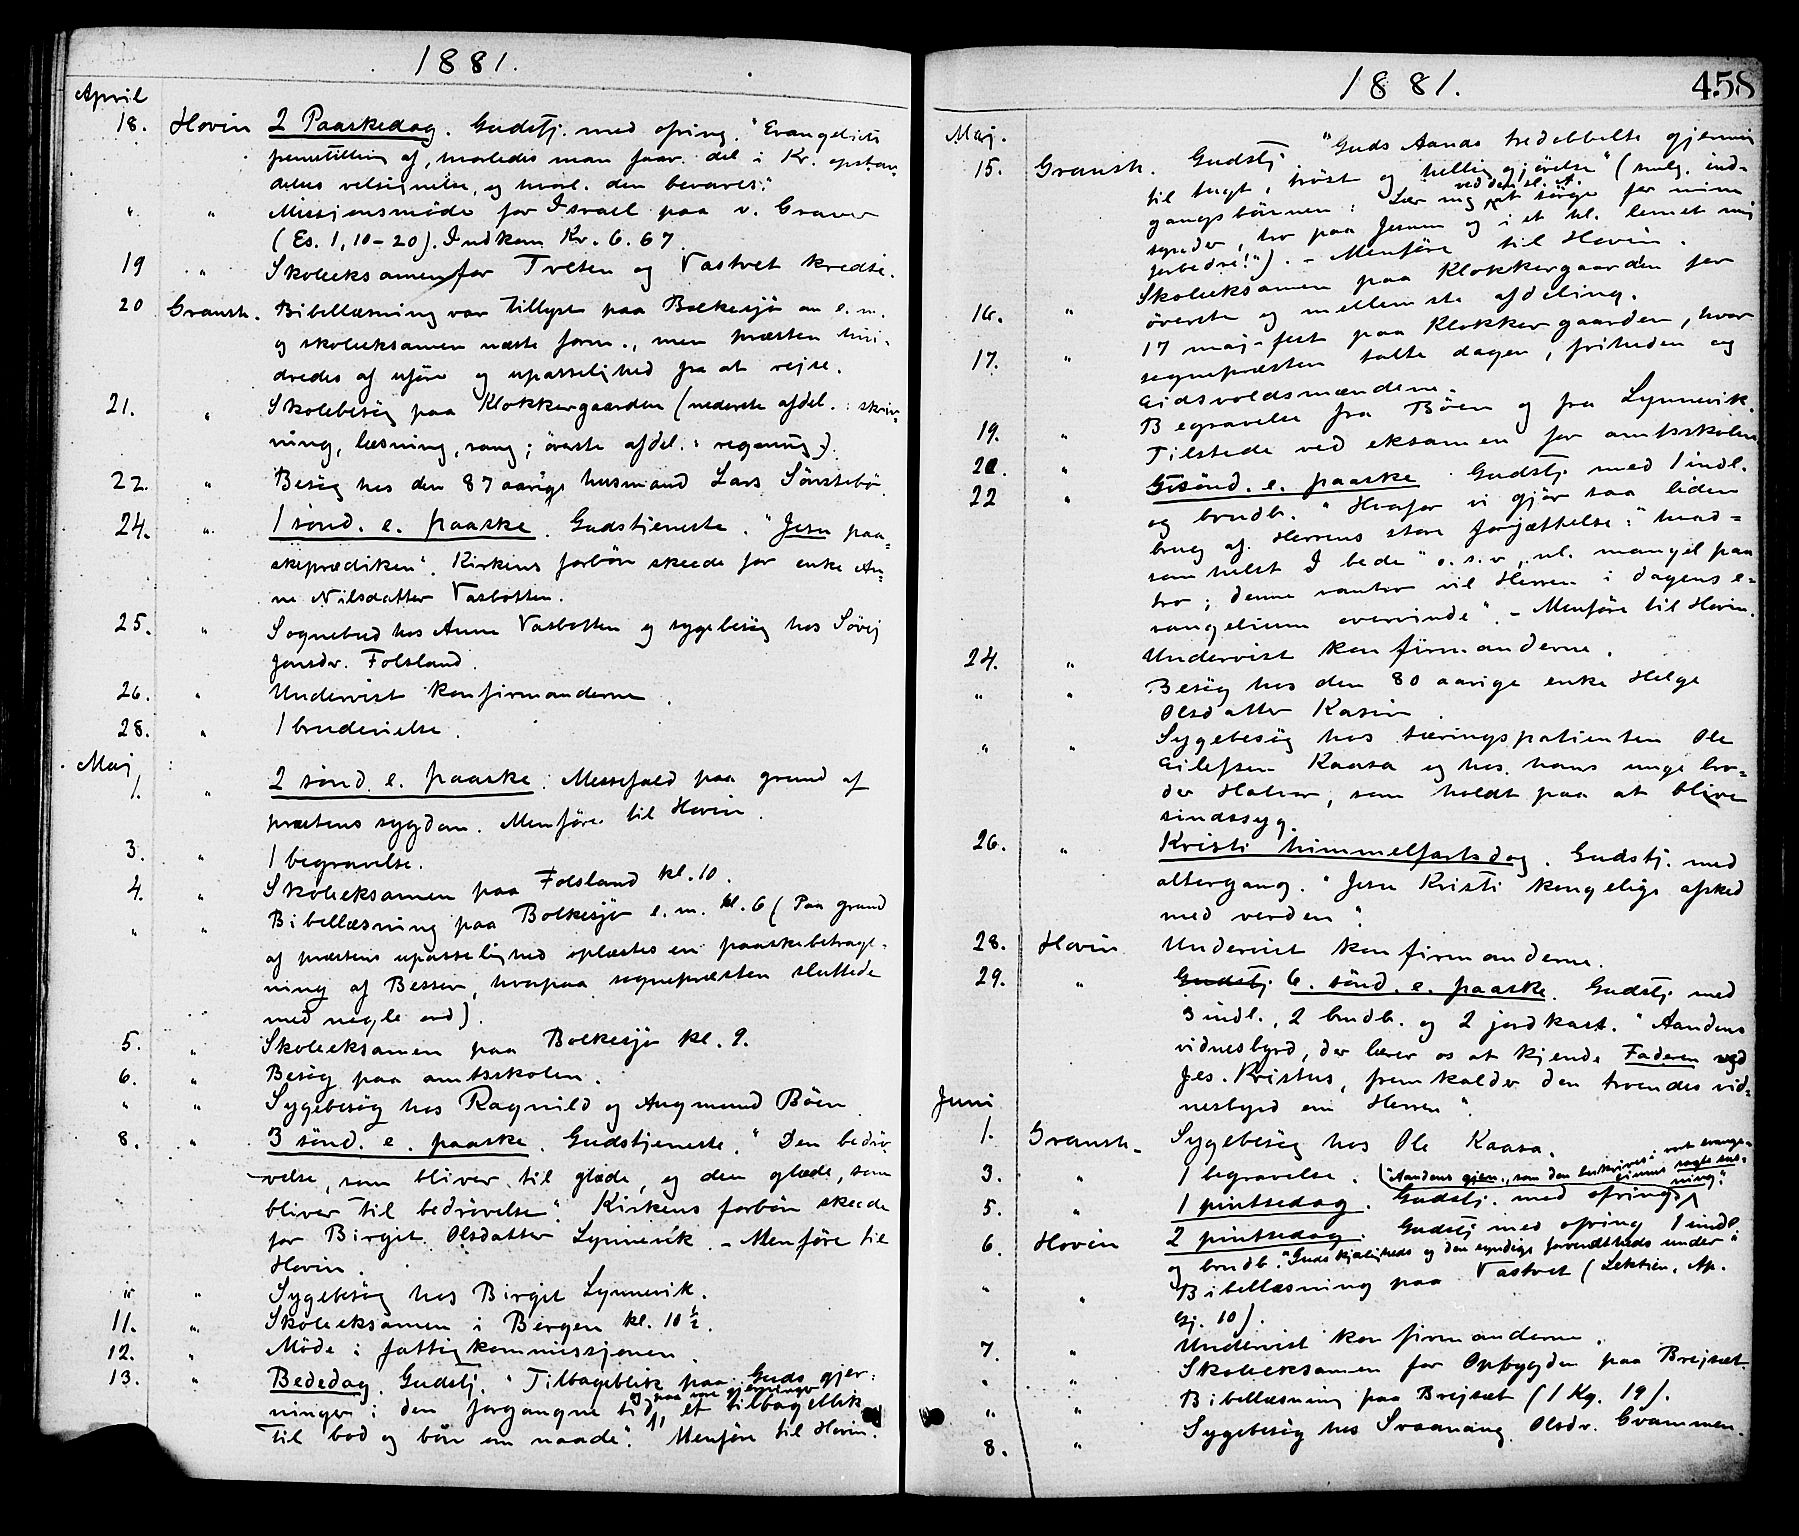 1881.
April
18. Hovin 2 Paaskedag. Gudstj. med ofring. "Evangeliets
fremstilling af, hvorledes man faar del i Kr. opstan-
delses velsignelse, og hvorl. den bevares."
" " Missionsmøde for Israel paa v. Graver
(Es. 1, 10-20). Indkom Kr. 6.67
19 " Skoleeksamen for Tveten og Vastvet kredse.
20 Gransh. Bibellæsning var tillyst paa Bolkesjø on e.m.
og skoleeksamen næste form., men præsten hin-
dredes af uføre og upasselighed fra at rejse.
21. " Skolebesøg paa Klokkergaarden (nederste afdel.: skriv-
ning, læsning, sang; øverste afdel.: regning).
22. " Besøg hos den 87 aarige husmand Lars Sønstebø
24. " 1 sønd. e. paaske. Gudstjeneste. "Jesu paa-
skeprædiken". Kirkens forbøn skeede for enke An-
ne Nilsdatter Vasbotten.
25. " Sognebud hos Anne Vasbotten og sygebesøg hos Søvej
Jonsdr. Folsland.
26. " Undervist konfirmanderne.
28. " 1 brudevielse.
Maj
1. " 2 sønd. e. paaske. Messefald paa grund af
præstens sygdom. Menføre til Hovin.
3. " 1 begravelse.
4. " Skoleeksamen paa Folsland kl. 10.
" " Bibellæsning paa Bolkesjø e.m. kl. 6 (Paa grund
af præstens upasselighed oplæstes en paaskebetragt-
ning af Besser, hvorpaa sognepræsten sluttede
med nogle ord).
5. " Skoleeksamen paa Bolkesjø kl. 9.
6. " Besøg paa amtsskolen.
" " Sygebesøg hos Ragnild og Augmund Bøen
8. " 3 sønd. e. paaske. Gudstjeneste. "Den bedrø-
velse, som bliver til glæde, og den glæde, som
bliver til bedrøvelse". Kirkens forbøn skeede
for Birgit Olsdatter Lynnevik. - Menføre til
Hovin.
" " Sygebesøg hos Birgit Lynnevik.
11. " Skoleeksamen i Bergen kl. 10 ½.
12. " Møde i fattigkommissjonen.
13. " Bededag. Gudstj. "Tilbageblik paa Guds gjer-
og paa vore gjerninger
ninger i den forgangne tid, et tilbageblik
til bod og bøn om naade". Menføre til Hovin.
1881.
458
Maj.
15. Gransh. Gudstj "Guds Aands tredobbelte gjerning
til tugt, trøst og helliggjørelse" (smlg. ind-
ved den hl. A.
gangsbønnen: Lær mig at sørge for mine
synder, tro paa Jesum og i et hl. levnet mig
forbedre!"). - Menføre til Hovin.
16. " Skoleeksamen paa Klokkergaarden for
øverste og mellemste afdeling.
17. " 17 maj-fest paa Klokkergaarden, hvor
sognepræsten talte dagen, friheden og
Eidsvoldsmændene.
19. " Begravelse fra Bøen og fra Lynnevik.
20. " Tilstede ved eksamen for amtsskolen
22 " 5 sønd. e. paaske Gudstj. med 1 indl.
og brudb. "Hvorfor vi gjør saa liden
brug af Herrens store forjættelse: "hvad-
somhelst I bede" o.s.v., nl. mangel paa
tro; denne vantro vil Herren i dagens e-
vangelium overvinde". - Menføre til Hovin.
24. " Undervist konfirmanderne.
" " Besøg hos den 80 aarige enke Helge
Olsdatter Kasin.
" " Sygebesøg hos tæringspatienten Ole
Eilefsen Kaasa og hos hans unge bro-
der Halvor, som holdt paa at blive
sindssyg.
26. " Kristi himmelfartsdag. Gudstj. med
altergang. "Jesu Kristi kongelige afsked
med verden".
28. Hovin Undervist konfirmanderne.
29. " Gudstj 6. sønd. e. paaske. Gudstj med
3 indl., 2 brudb. og 2 jordkast. "Aandens
vidnesbyrd, der lærer os at kjende Faderen ved
Jes. Kristus, fremkalder den troendes vid-
nesbyrd om Herren".
Juni
1. Gransh. Sygebesøg hos Ole Kaasa.
3. " 1 begravelse. ("Aandens gjern., som den beskrives i vort evange-
liums sagte sus-
ning".
5. " 1 pintsedag. Gudstj. med ofring
6. Hovin 2 pintsedag. Gudstj med ofring 1 indl.
og brudb. "Guds kjærligheds og den syndige fortabtheds under"
" " Bibellæsning paa Vastvet (Lektien, Ap.
Gj. 10).
7. " Undervist konfirmanderne.
" " Skoleeksamen for Opbygden paa Brejsæt
" " Bibellæsning paa Brejsæt (1 Kg. 19).
8. " Sygebesøg hos Svanaug Olsdr. Gvammen.